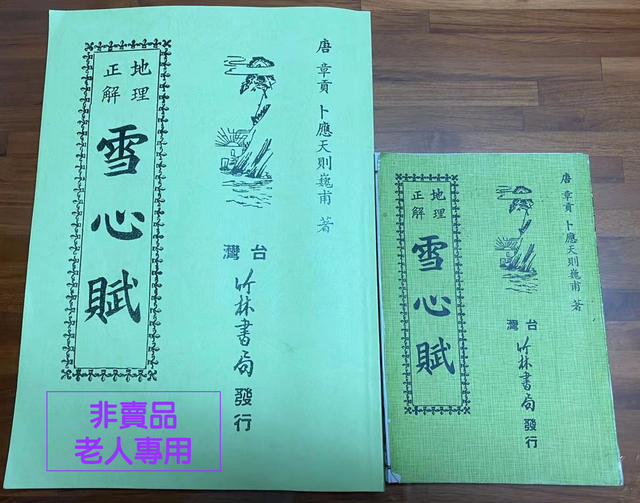 唐 章貢 卜應天則巍甫 著
地理
正解
雪心賦
台灣
竹林書局發行
非賣品
老人專用
唐 章貢 卜應天則巍甫 著
地理
正解
雪心賦
台灣
竹林書局發行